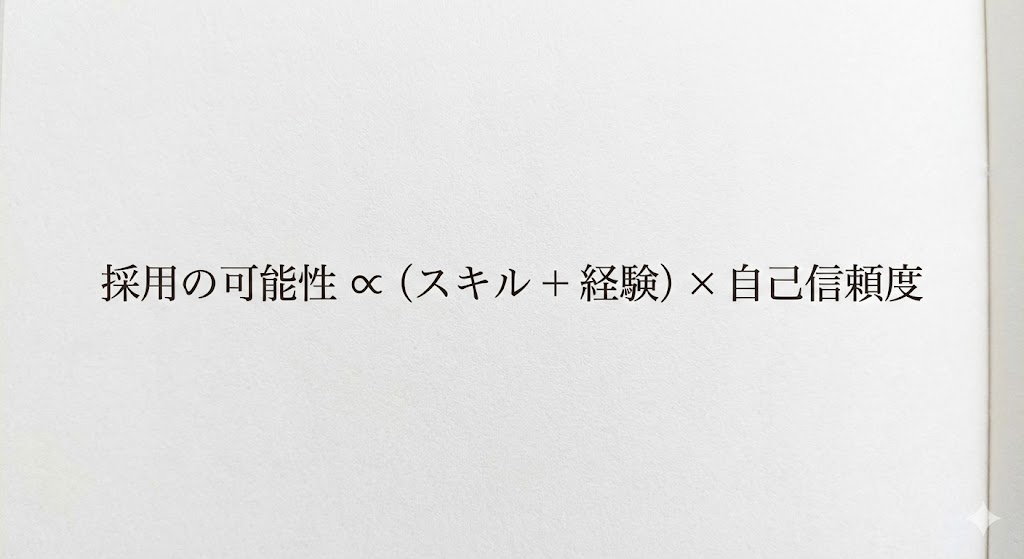 採用の可能性 ∝ (スキル + 経験) × 自己信頼度